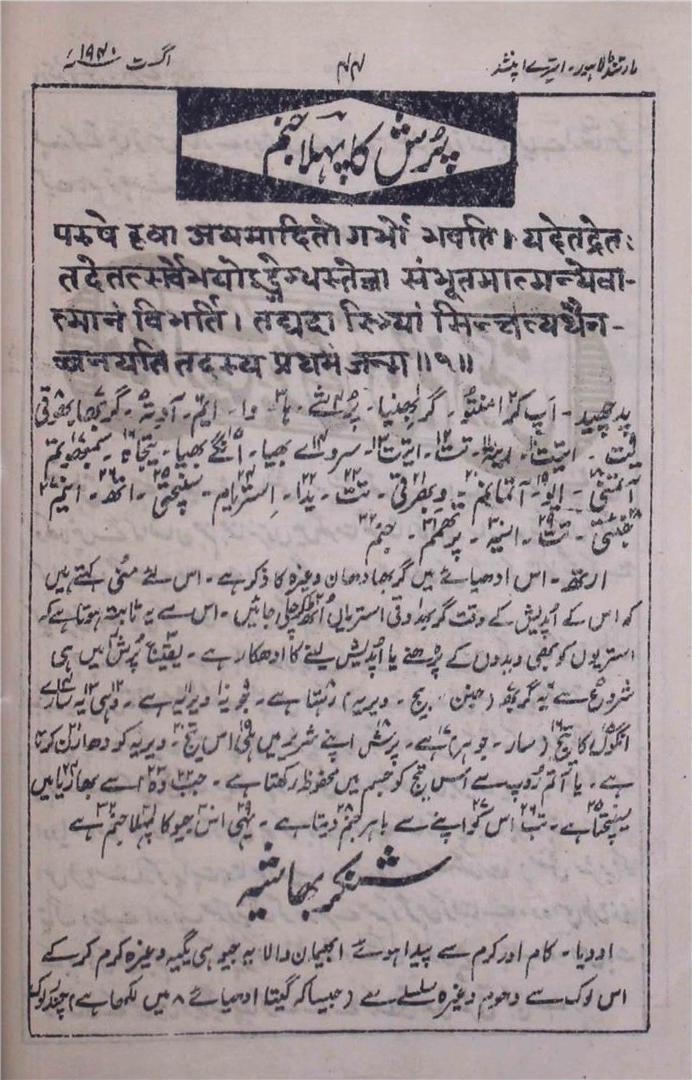 مارتنڈ لاہور۔ ایترے اپنشد ۴۴ اگست ۱۹۴۰ء
پُرش کا پہلا جنم
परुषे हवा अयमादितो गर्भो भवति। यदेतद्रेतः
तदेतत्सर्वेभयोऽङ्गेभ्यस्तेजः संभूतमात्मन्येवा-
त्मानं विभर्ति। तद्यदा स्त्रियां सिञ्चत्यथैन-
ज्जनयति तदस्य प्रथमं जन्म॥१॥
پد چھید۔ اَپ کرامنتُو۔ گربھنیا۔ پُرشے۔ ہا۔ وا۔ ایم۔ آدِتہ۔ گربھا بھوتی
یت۔ ایتت۔ ایرتہ۔ تت۔ ایتت۔ سروے بھیا۔ انگے بھیا۔ تیجا۔ سمبھوتم
آتمنی۔ ایو۔ آتمانم۔ وِبھرتی۔ تت۔ یدا۔ اِستریام۔ سینچتی۔ اتھ۔ اینم
جنیتی۔ تت۔ اسیہ۔ پرتھمم۔ جنم
ارتھ۔ اس ادھیائے میں گربھادھان وغیرہ کا ذکر ہے۔ اس لئے مُنی کہتے ہیں
کہ اس کے اُپدیش کے وقت گربھ وتی استریاں اُٹھکر چلی جائیں۔ اس سے یہ ثابت ہوتا ہے کہ
استریوں کو بھی ویدوں کے پڑھنے یا اُپدیش لینے کا ادھکار ہے۔ یقیناً پُرش میں ہی
شروع سے یہ گربھ (جنین۔ بیج۔ ویریہ) رہتا ہے۔ جو یہ ویریہ ہے۔ وہی یہ سارے
انگوں کا تیج (سار۔ جوہر) ہے۔ پرش اپنے شریر میں ہی اس تیج۔ ویریہ کو دھارن کرتا
ہے۔ یا آتم رُوپ سے اُس تیج کو جسم میں محفوظ رکھتا ہے۔ جب وہ اسے بھاریا میں
سینچتا ہے۔ تب اس کو اپنے سے باہر جنم دیتا ہے۔ یہی اس جیو کا پہلا جنم ہے
شنکر بھاشیہ
اودیا۔ کام اور کرم سے پیدا ہوئے ابھیمان والا یہ جیو ہی یگیہ وغیرہ کرم کر کے
اس لوک سے دھوم وغیرہ سلسلے سے (جیسا کہ گیتا ادھیائے ۸ میں لکھا ہے) چندر لوک